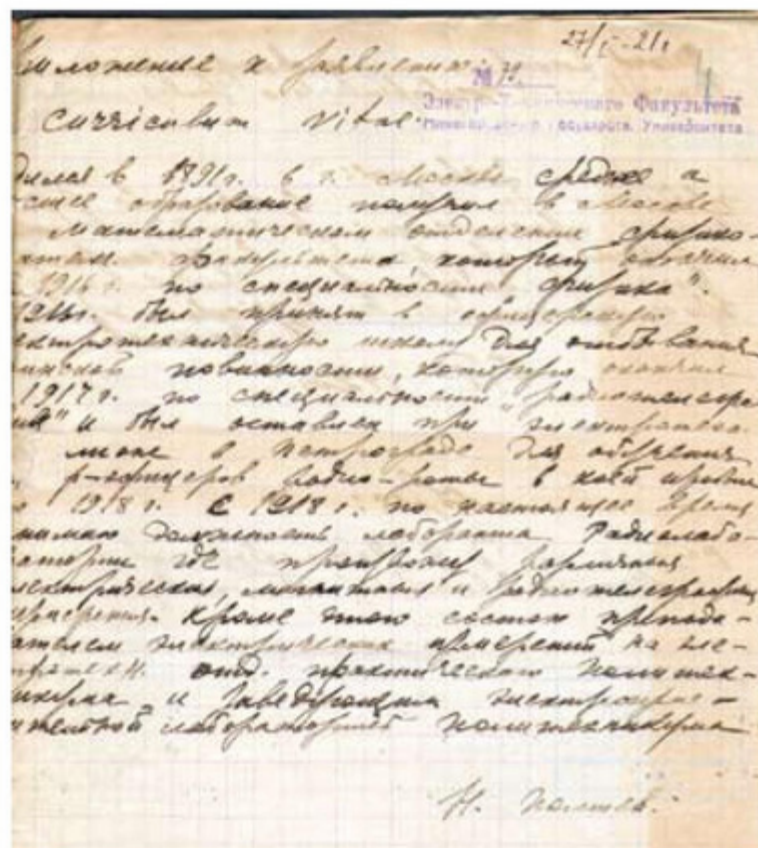 27/I-21г
ложение к заявлению
№ 73.
Электр-Технического Факультета
Государств. Университета
Curriculum vitae.
дился в 1891г. в г. Москве среднее и
сшее образование получил в Москве
математическом отделении физико-
матем. факультета, который окончил
1916г. по специальности „физика".
1916г. был принят в офицерскую
ектротехническую школу для отбывания
инской повинности, которую окончил
1917г. по специальности „радиотелегра
ия" и был оставлен при электротехн.
школе в Петрограде для обучения
р-офицеров радио-роты в коей пробыл
о 1918г. С 1918г. по настоящее время
нимаю должность лаборанта Радиолабо-
ратории где произвожу различные
лектрические, магнитные и радиотелеграфные
змерения. Кроме того состою препода-
ателем электрических измерений на эле-
отд. практического политех-
никума и заведующим электроизме-
ительной лабораторией политехникума
Н.